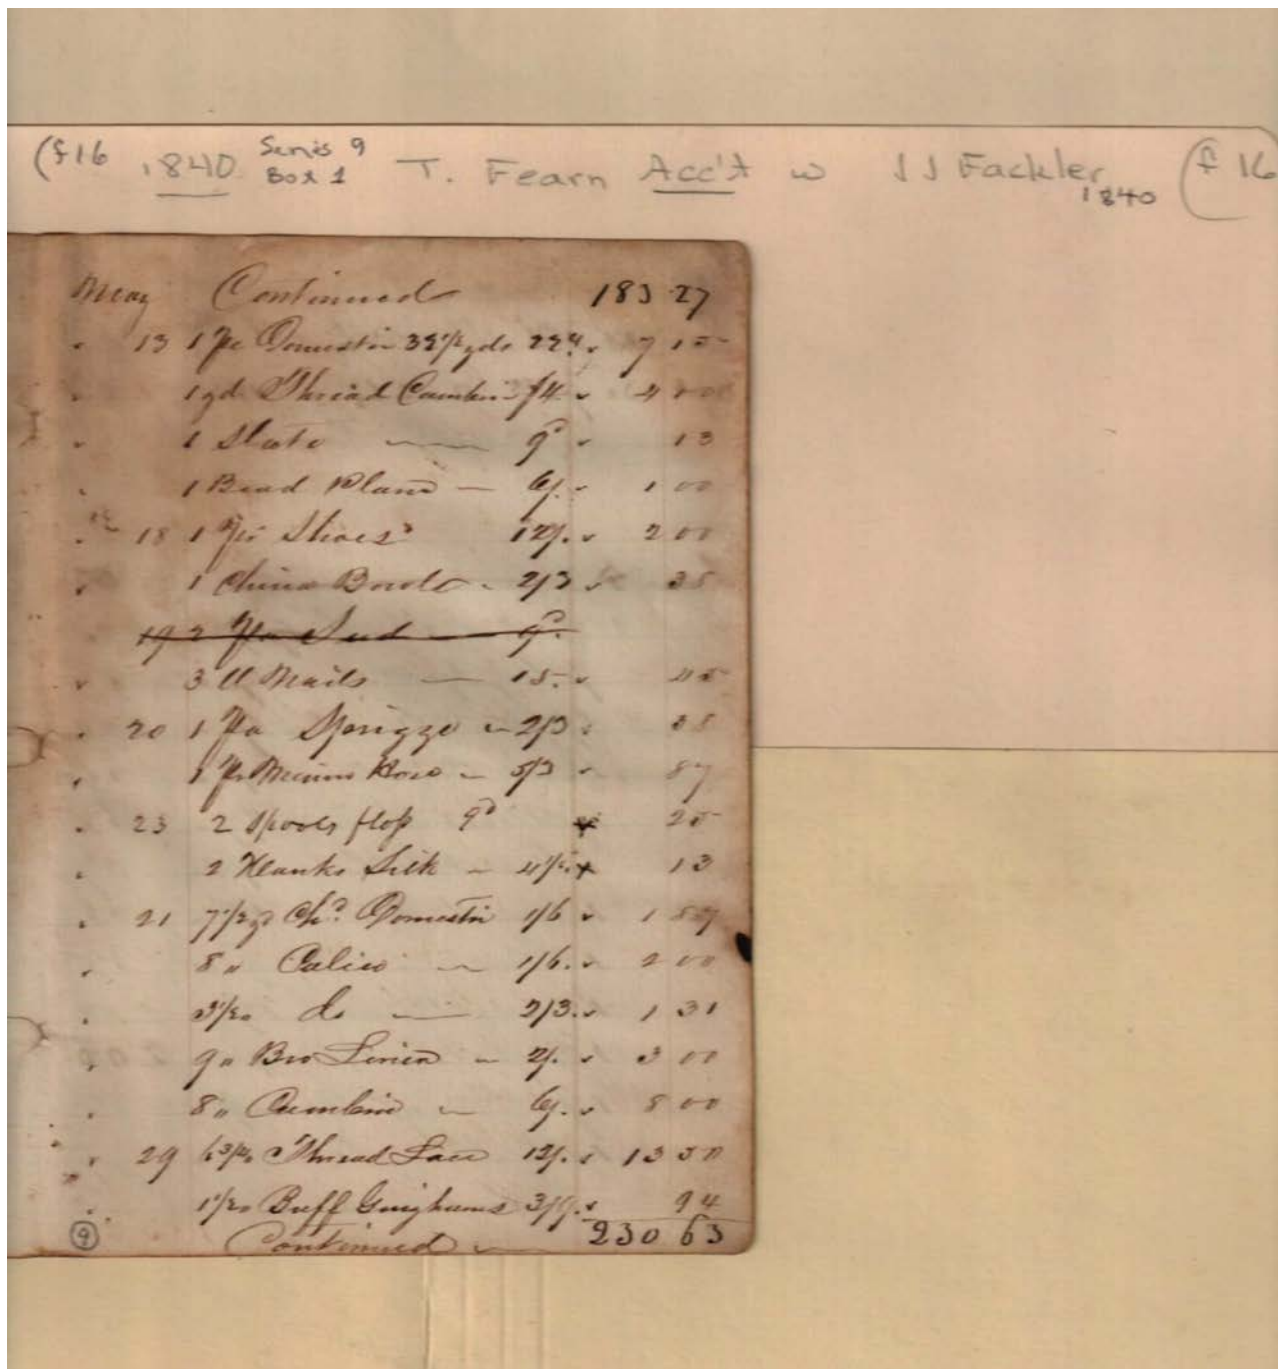 (f16 1840 Series 9 Box 1 T. Fearn Acc't w J J Fackler 1840 (f 16
May Continued 183 27
" 13 1 Ps Domestic 32 1/2 yds 22 cts 7 15
" 1 yd Thread Cambric $4. 4 00
" 1 Slate 9d 13
" 1 Bead 6/. 1 00
" 18 1 Pr Shoes 12/. 2 00
" 1 China Bowl 2/3 38
19 2 Pa Seed 9d.
" 3 ll Nails 15. 45
" 20 1 Pa 2/3 38
" 1 Pr Merino Hose 5/3 87
" 23 2 Spools floss 9d 25
" 2 Hanks Silk 4 1/2. 13
" 21 7 1/2 yd Chd. Domestic 1/6 1 87
" 8 " Calico 1/6. 2 00
" 3 1/2 " do 2/3. 1 31
" 9 " Bro Linen 2/. 3 00
" 8 " Cambric 6/. 8 00
" 29 6 3/4 " Thread Lace 12/. 13 50
" 1 1/2 " Buff Ginghams 3/9. 94
9 Continued 230 63